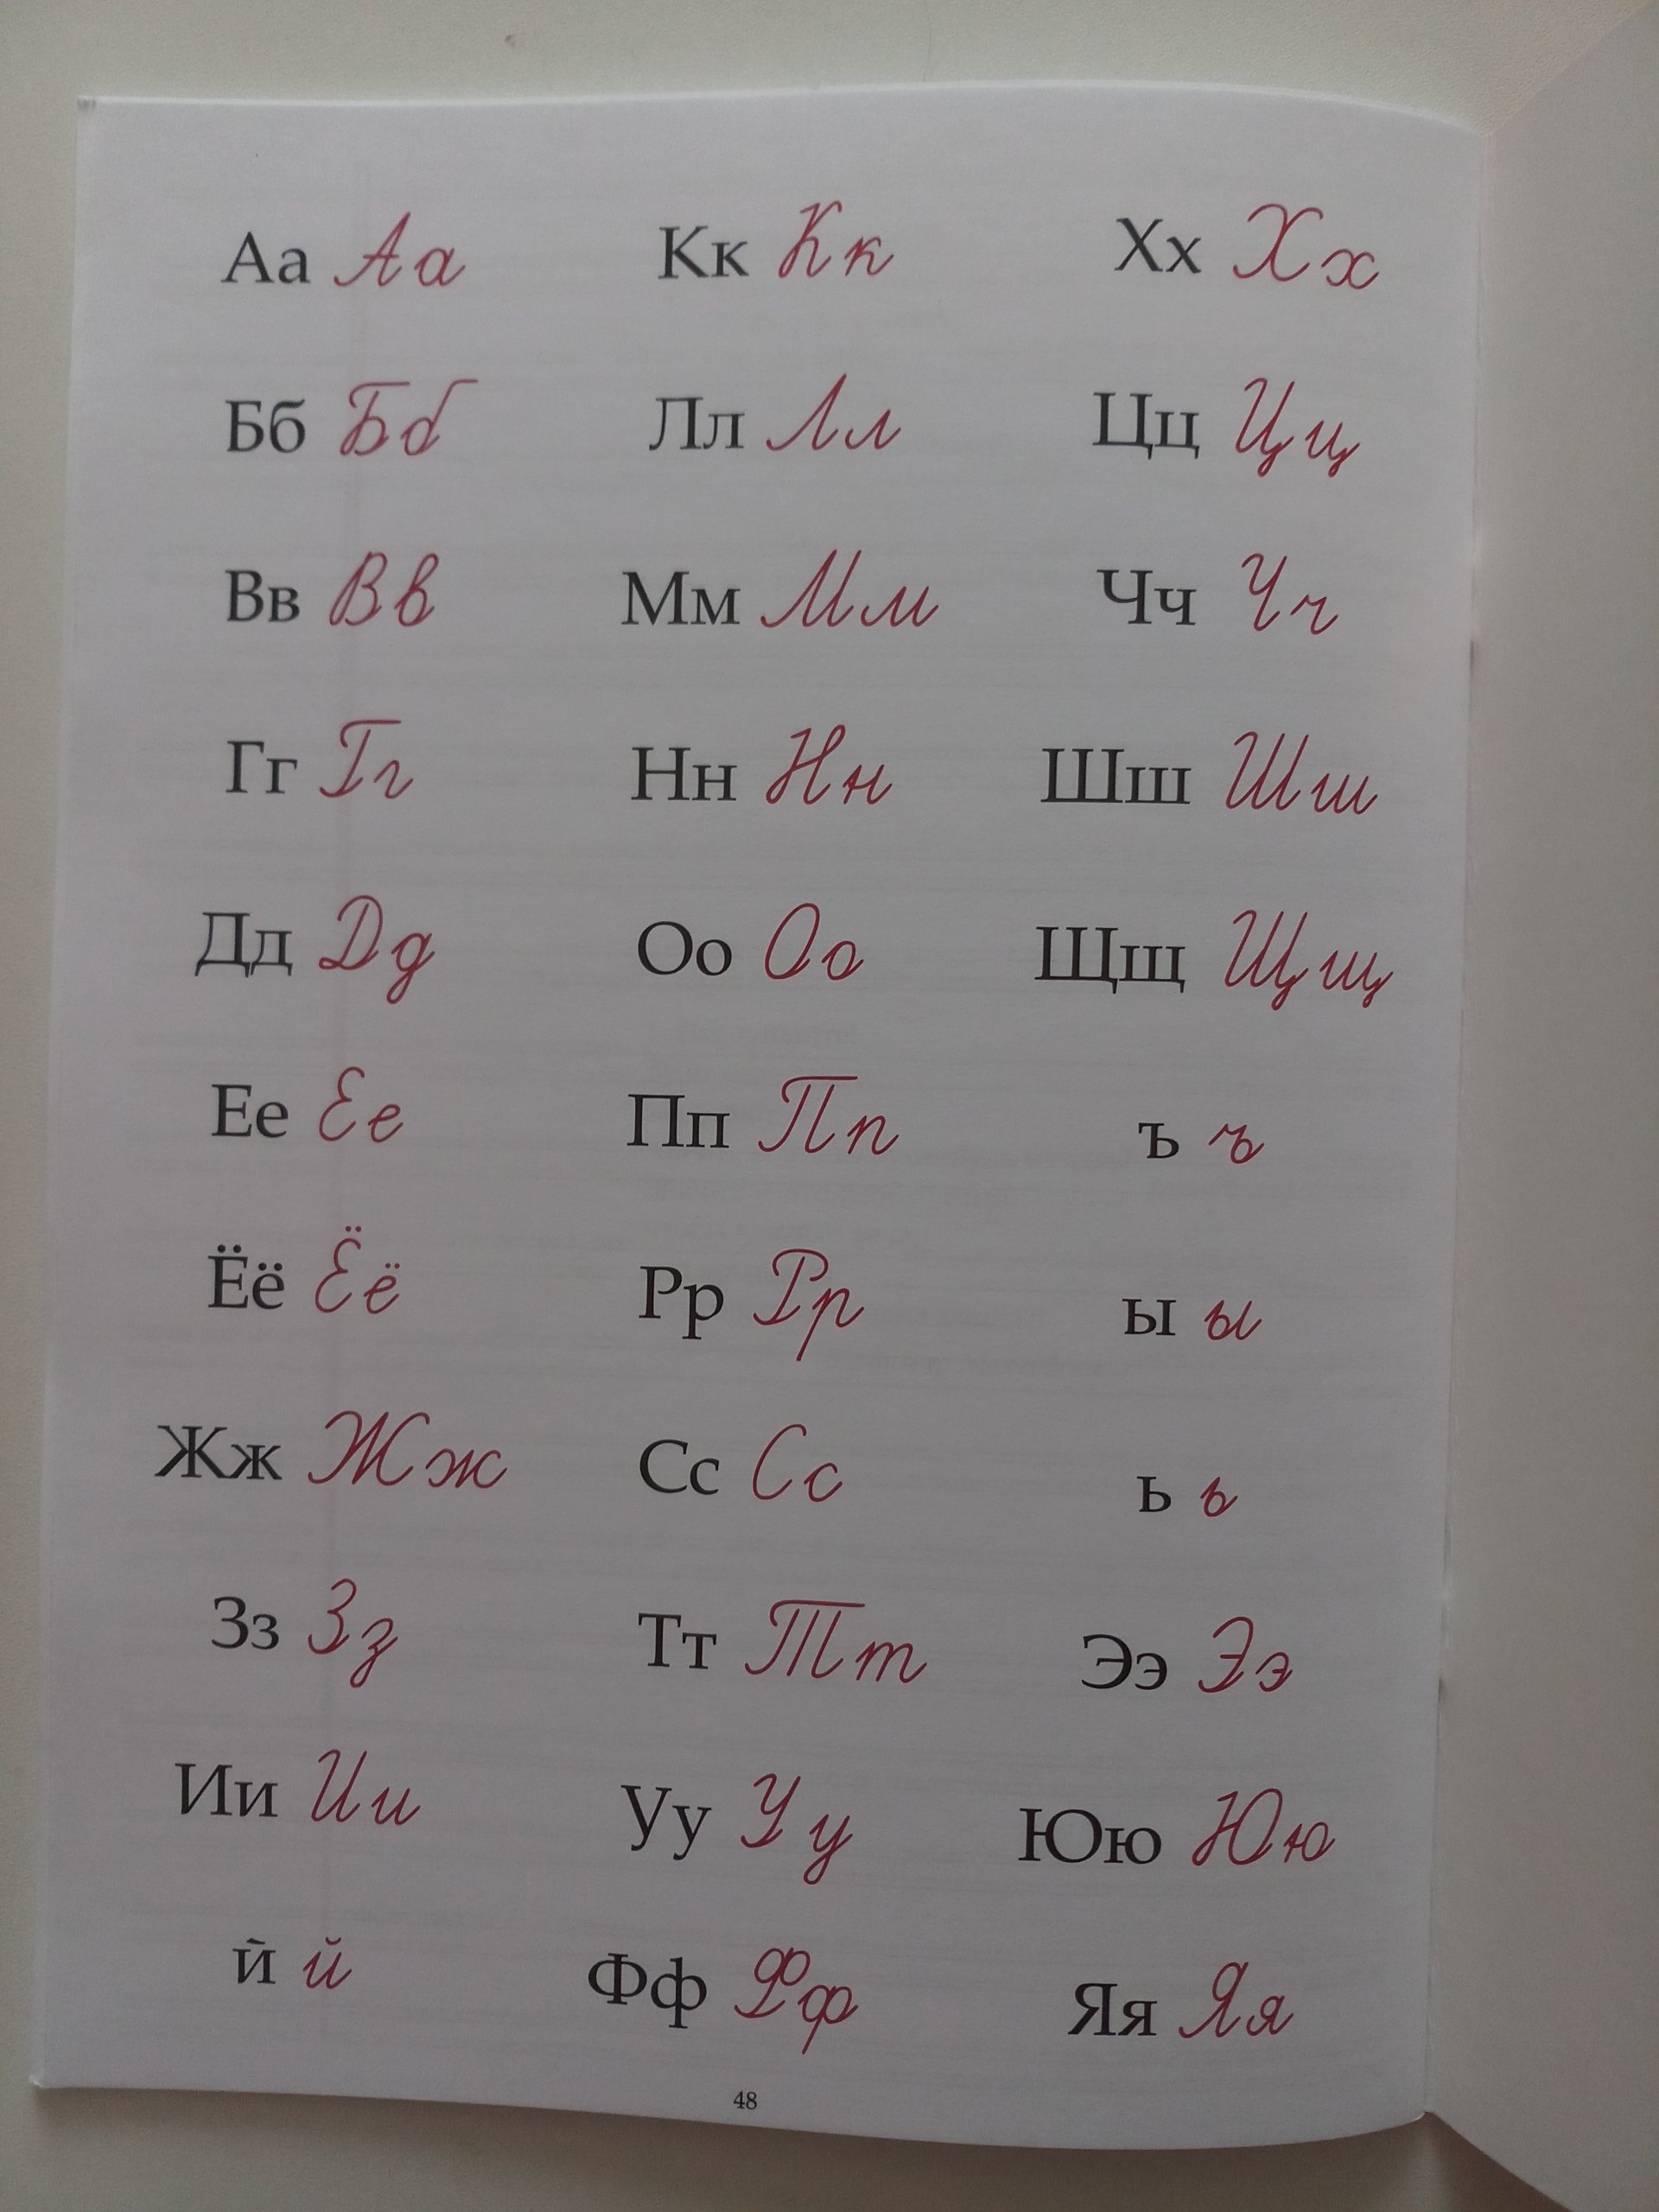 Аа Аа
Бб Бб
Вв Вв
Гг Гг
Дд Дд
Ее Ее
Ёё Ёё
Жж Жж
Зз Зз
Ии Ии
й й
Кк Кк
Лл Лл
Мм Мм
Нн Нн
Оо Оо
Пп Пп
Рр Рр
Сс Сс
Тт Тт
Уу Уу
Фф Фф
Хх Хх
Цц Цц
Чч Чч
Шш Шш
Щщ Щщ
ъ ъ
ы ы
ь ь
Ээ Ээ
Юю Юю
Яя Яя
48